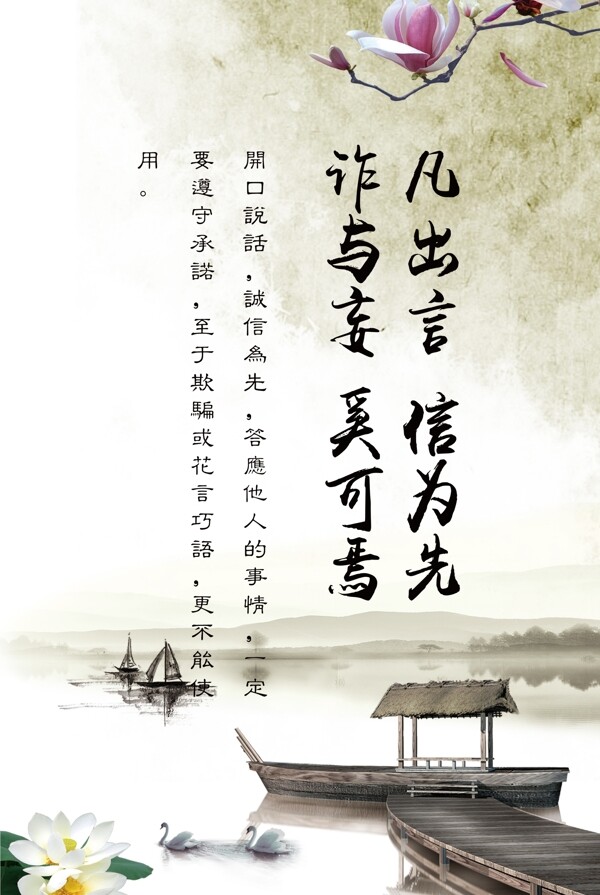 凡出言 信为先
诈与妄 奚可焉
開口說話,誠信為先,答應他人的事情,一定
要遵守承諾,至于欺騙或花言巧語,更不能使
用。